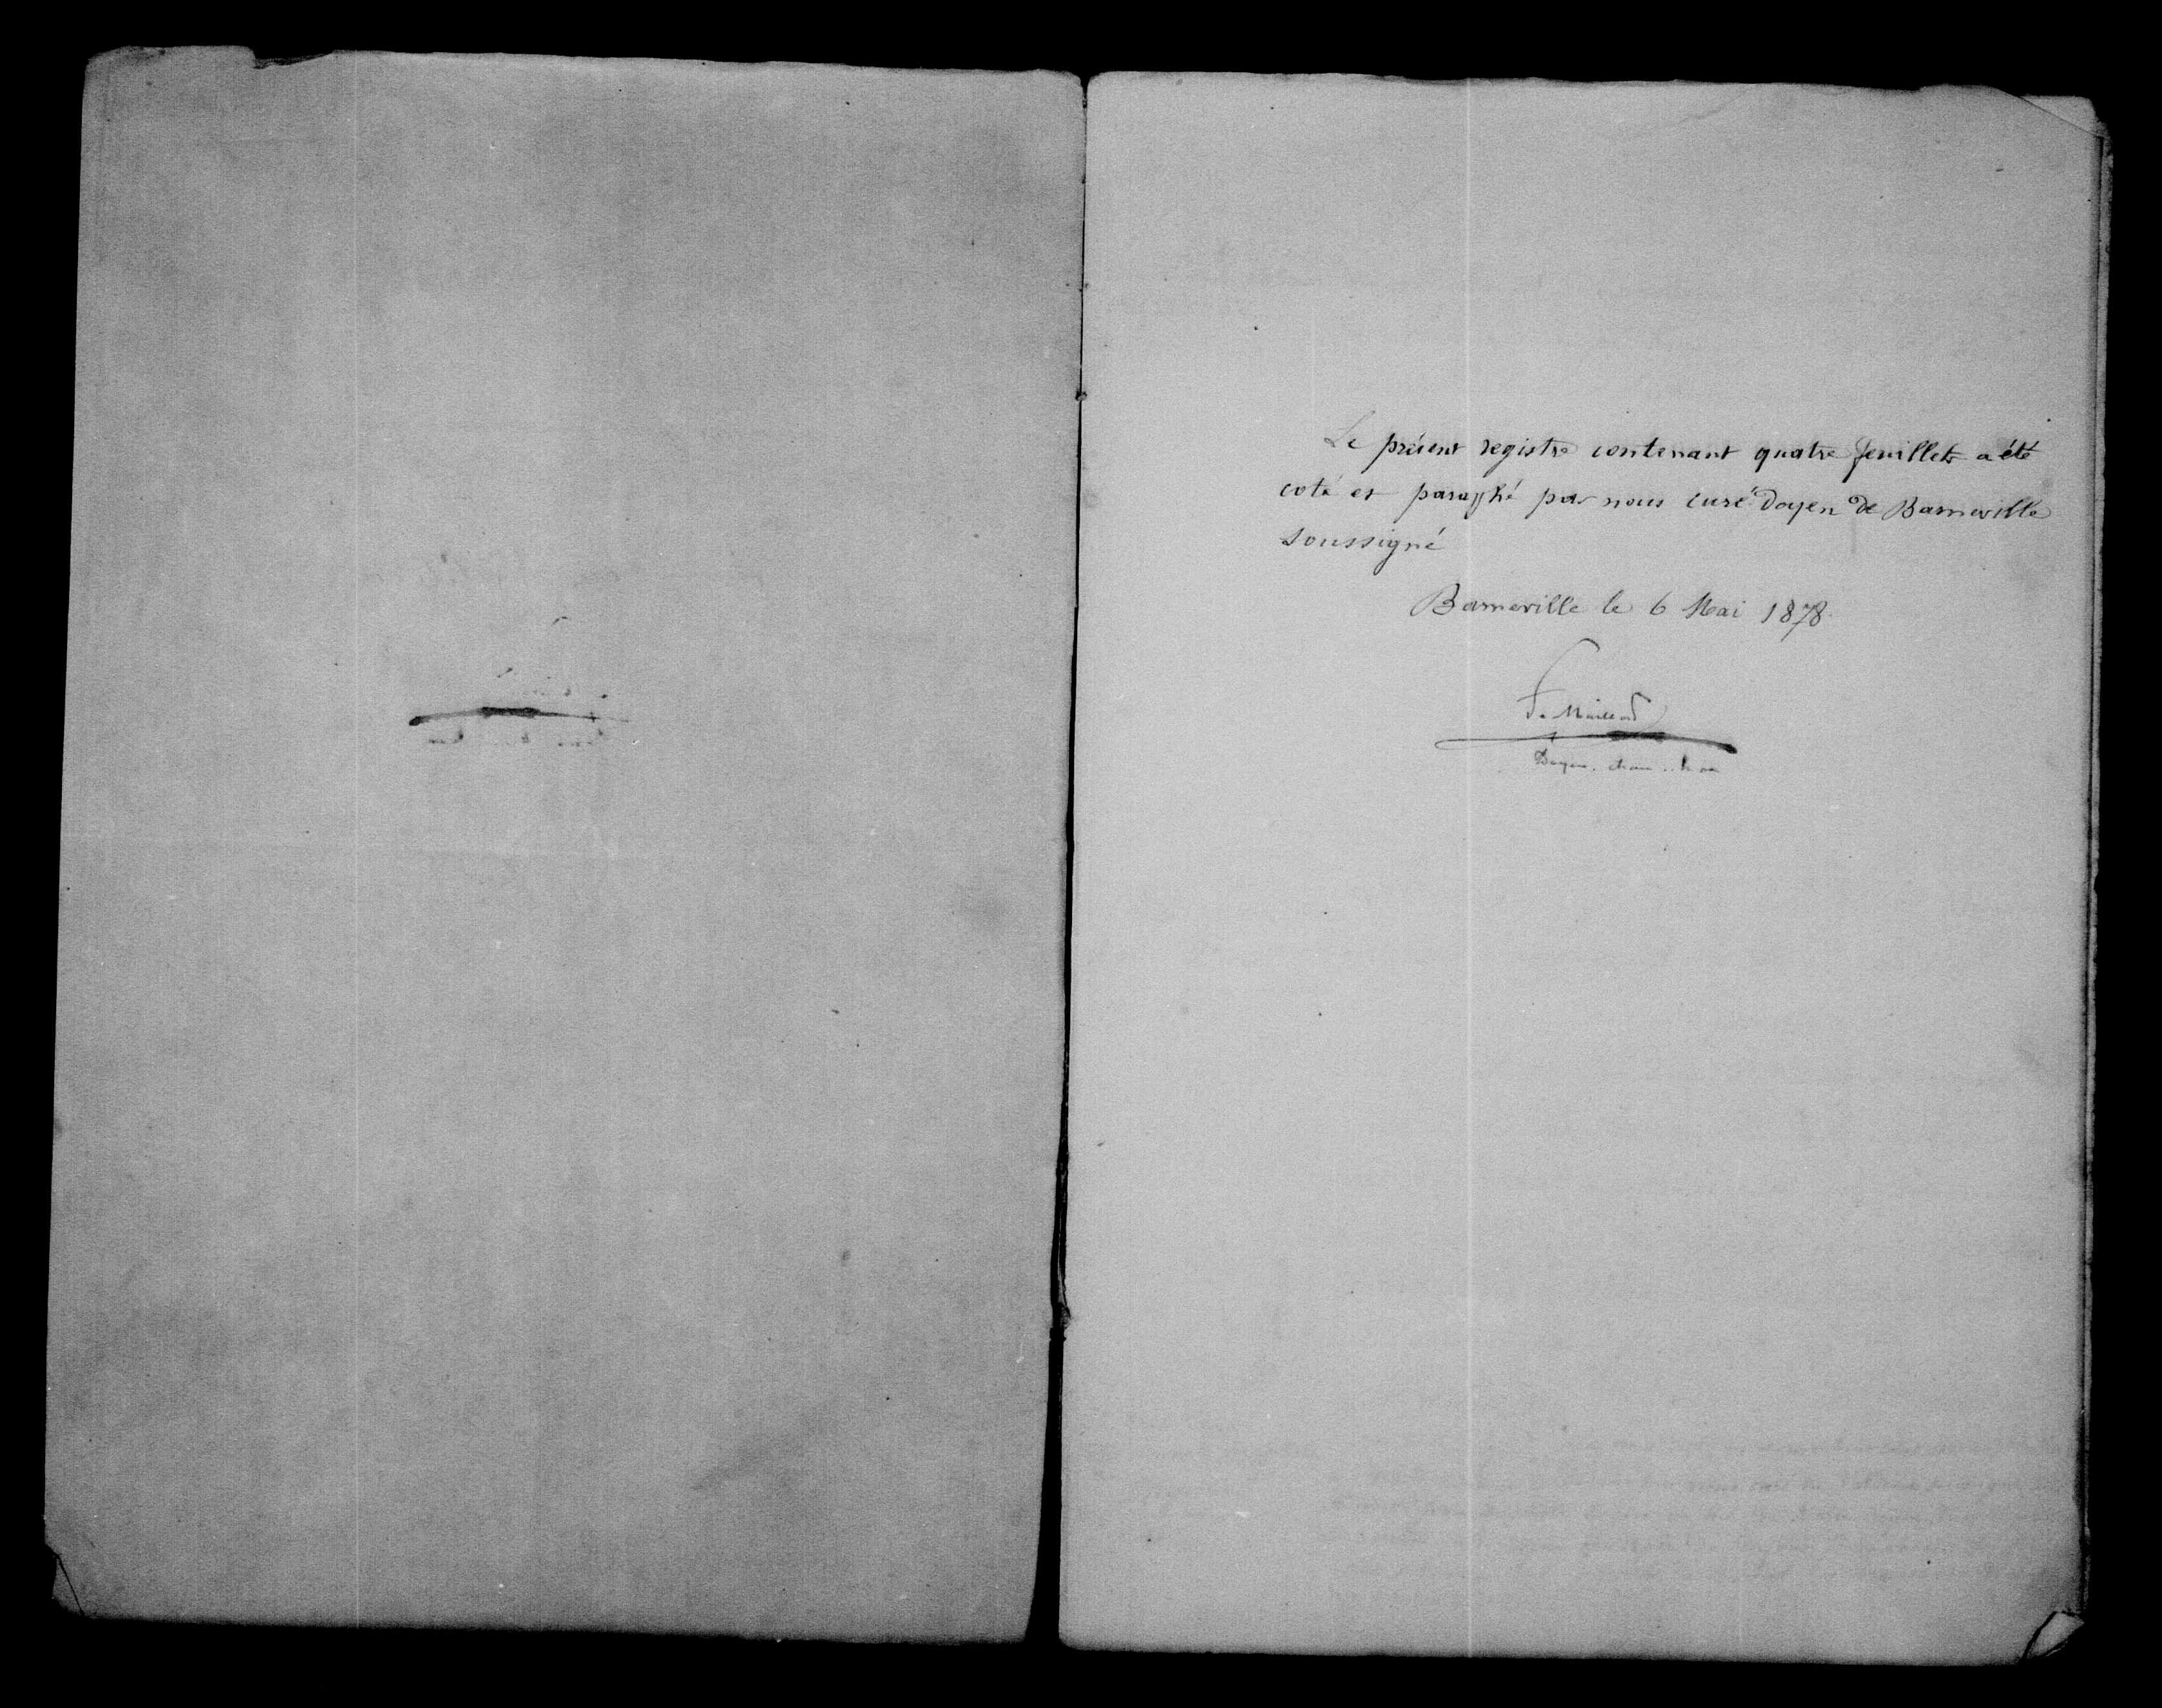 Le présent registre contenant quatre feuillets a été
coté et paraphé par nous curé Doyen de Barneville
soussigné
Barneville le 6 Mai 1878.
Doyen.